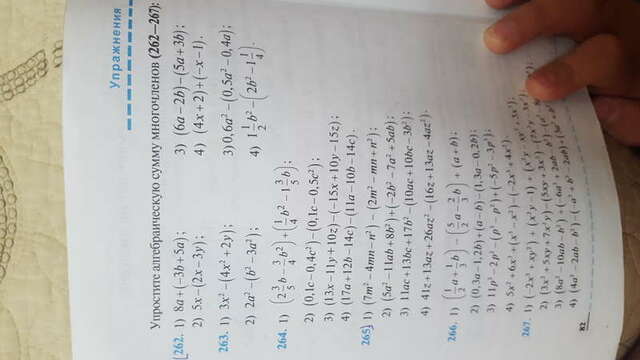 Упражнения
Упростите алгебраическую сумму многочленов (262—267):
262. 1) 8a+(−3b+5a); 3) (6a−2b)−(5a+3b);
2) 5x−(2x−3y); 4) (4x+2)+(−x−1).
263. 1) 3x²−(4x²+2y); 3) 0,6a²−(0,5a²−0,4a);
2) 2a²−(b²−3a²); 4) 1 1/2 b²−(2b²−1 1/4).
264. 1) (2 3/5 b−3/4 b²)+(1/4 b²−1 3/5 b);
2) (0,1c−0,4c²)−(0,1c−0,5c²);
3) (13x−11y+10z)−(−15x+10y−15z);
4) (17a+12b−14c)−(11a−10b−14c).
265. 1) (7m²−4mn−n²)−(2m²−mn+n²);
2) (5a²−11ab+8b²)+(−2b²−7a²+5ab);
3) 11ac+13bc+17b²−(10ac+10bc−3b²);
4) 41z+13az+26az²−(16z+13az−4az²).
266. 1) (1/2 a+1/3 b)−(5/2 a−2/3 b)+(a+b);
2) (0,3a−1,2b)+(a−b)−(1,3a−0,2b);
3) 11p³−2p²−(p³−p²)+(−5p²−3p³);
4) 5x²+6x³+(x³−x²)−(−2x³+4x²).
267. 1) (−2x³+xy²)+(x²y−1)+(x²y−xy²+3x³);
2) (3x²+5xy+7x²y)−(5xy+3x²)−(7x²y−3x²);
3) (8a²−10ab−b²)+(−6a²+2ab−b²)−(a²−8
4) (4a²−2ab−b²)−(−a²+b²−2ab)+(3a²
82